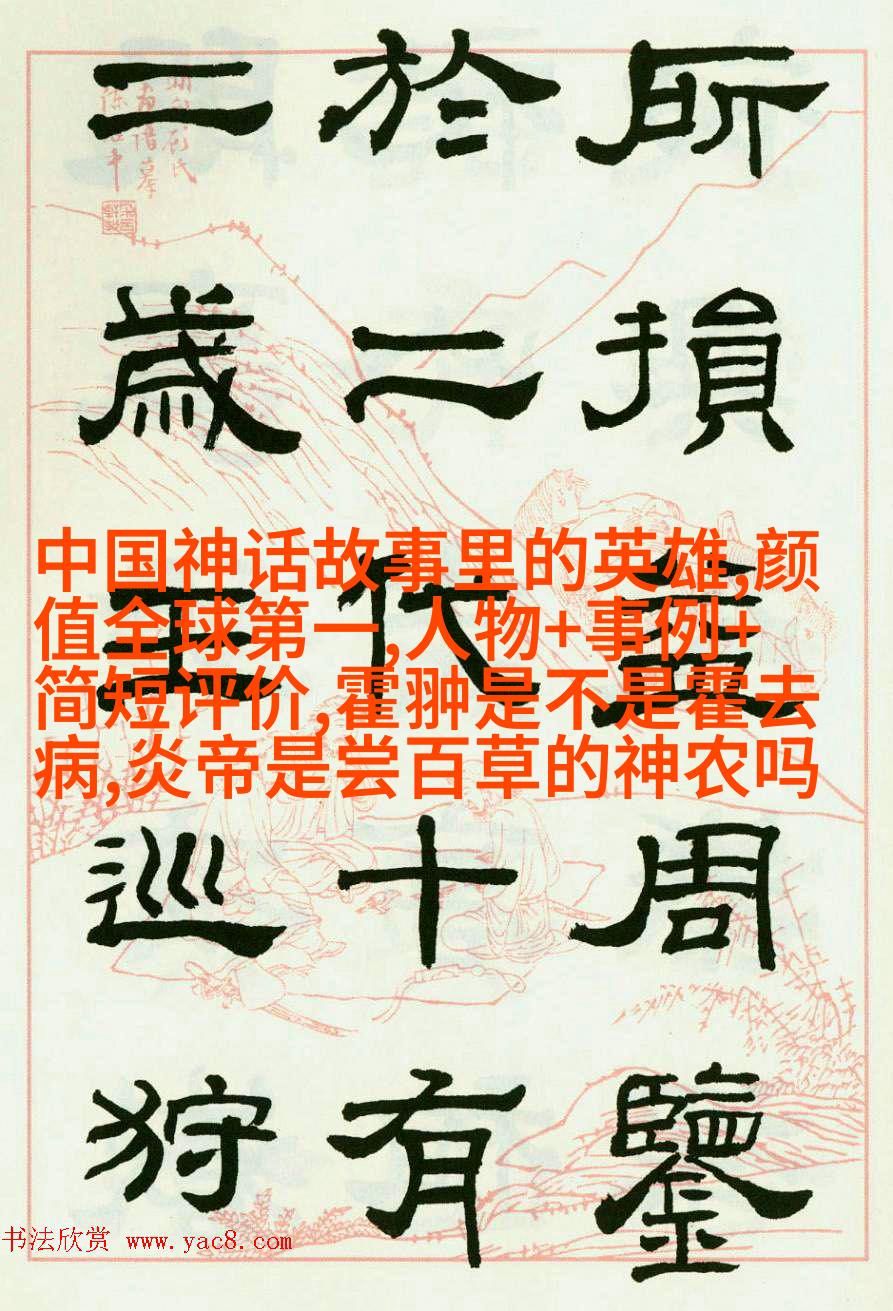 所損益周鑒
於二代十有
二歲王巡狩
中国神话故事里的英雄,颜
值全球第一,人物+事例+
简短评价,霍翀是不是霍去
病,炎帝是尝百草的神农吗
书法欣赏 www.yac8.com